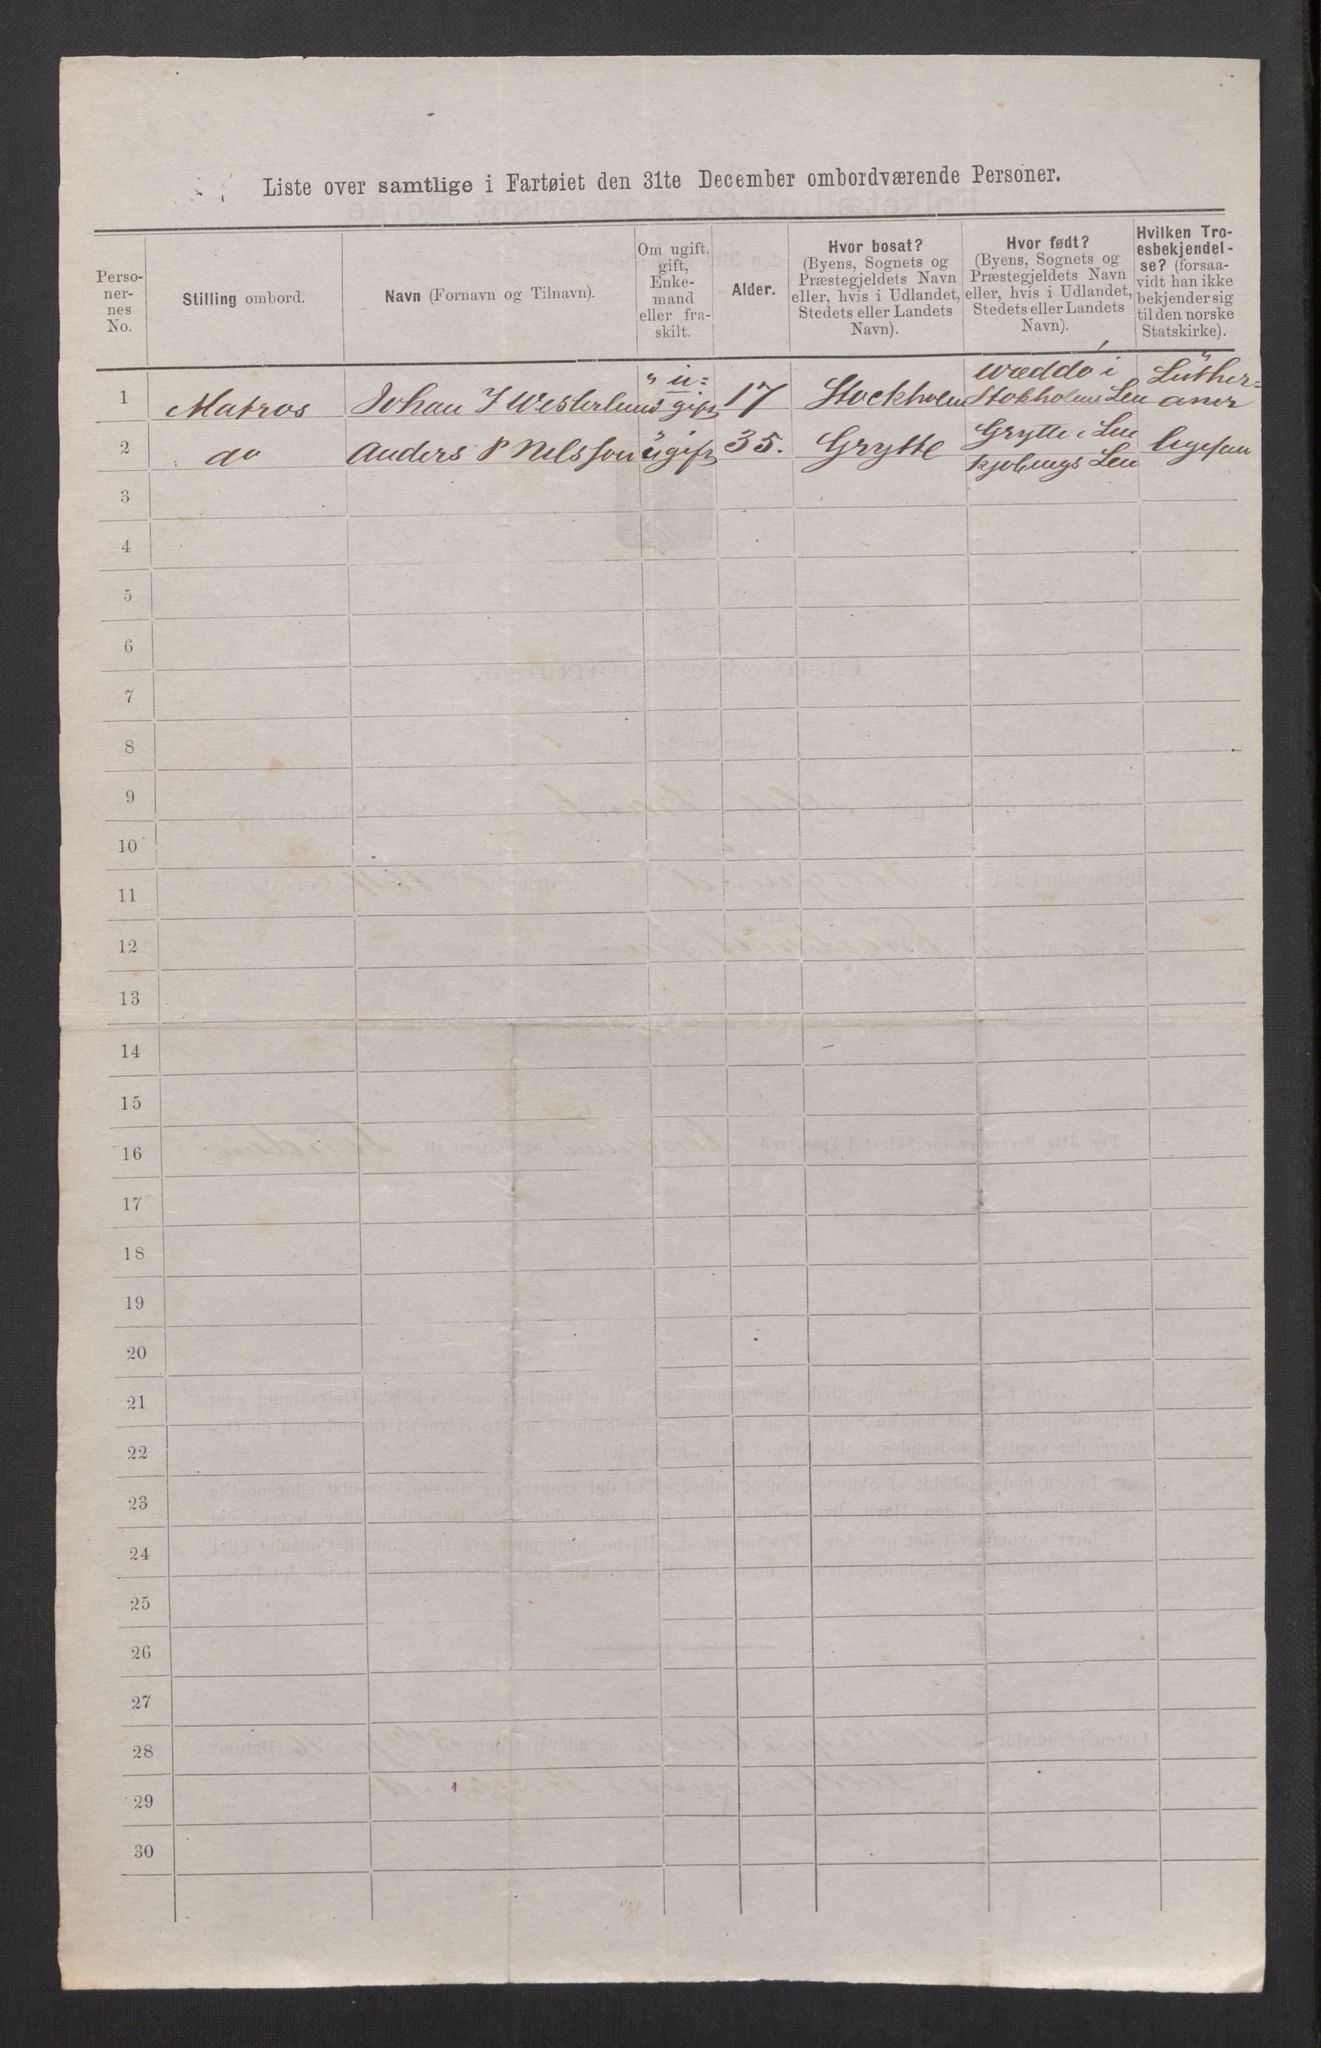 Liste over samtlige i Fartøiet den 31te December ombordværende Personer.
Perso-
ner-
nes
No.
Stilling ombord.
Navn (Fornavn og Tilnavn).
Om ugift,
gift,
Enke-
mand
eller fra-
skilt.
Alder.
Hvor bosat?
(Byens, Sognets og
Præstegjeldets Navn
eller, hvis i Udlandet,
Stedets eller Landets
Navn).
Hvor født?
(Byens, Sognets og
Præstegjeldets Navn
eller, hvis i Udlandet,
Stedets eller Landets
Navn).
Hvilken Tro-
esbekjendel-
se? (forsaa-
vidt han ikke
bekjender sig
til den norske
Statskirke).
1 Matros Johan I Westerlund u= gift 17 Stockholm Wæddö i Stokholms Len Luther= aner
2 do Anders P Nelsson ugift 35. Grytte Grytte i Lin kjøbings Len ligesaa
3
4
5
6
7
8
9
10
11
12
13
14
15
16
17
18
19
20
21
22
23
24
25
26
27
28
29
30